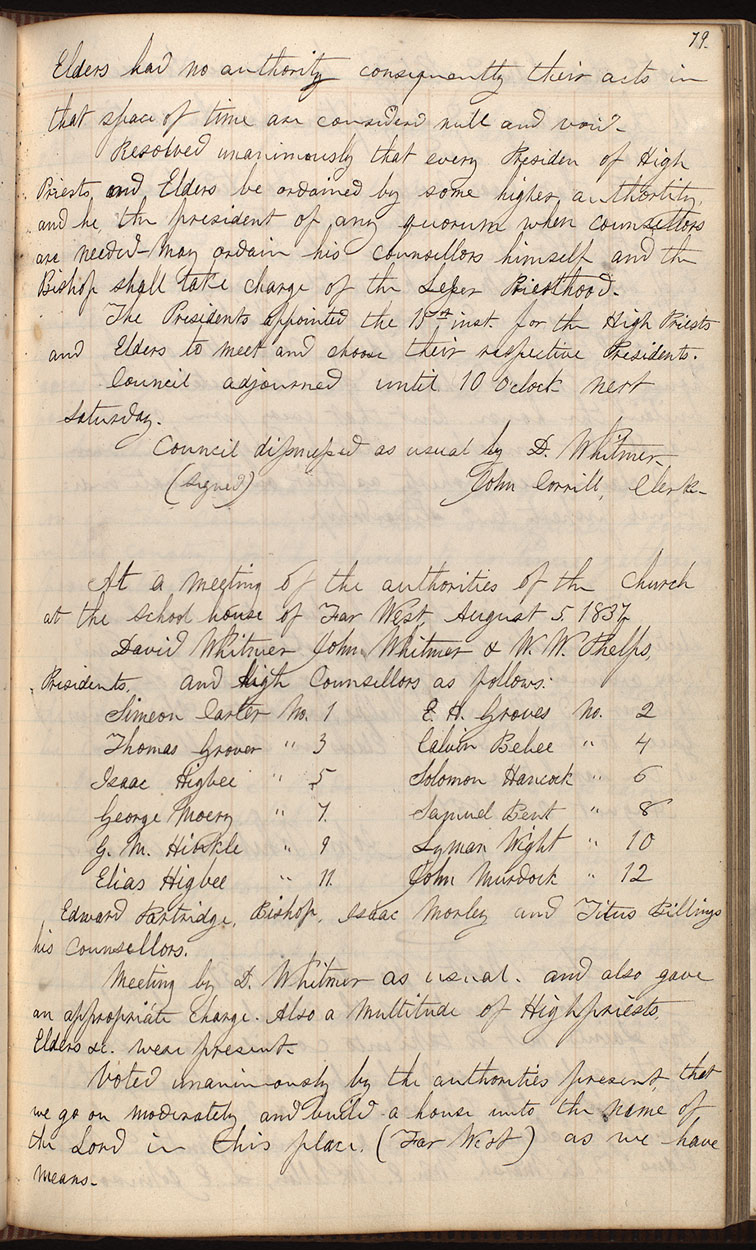 79.
Elders had no authority consequently their acts in
that space of time are considerd null and void-
Resolved unanimously that every Presiden of High
Priests and Elders be ordained by some higher authortity,
and he, the president of any quorum when counsellors
are needed- may ordain his counsellors himself and the
Bishop shall take charge of the Lesser Priesthood.
The Presidents appointed the 15th inst. for the High Priests
and Elders to meet and choose their respective Presidents.
Council adjourned until 10 Oclock next
saturday.
Council dismissed as usual by D. Whitmer-
(Signed) John Corrill, Clerk-
At a meeting of the authorities of the Church
at the school house of Far West, August 5, 1837,
David Whitmer John Whitmer & W. W. Phelps,
Presidents, and High Counsellors as follows:
Simeon Carter No. 1, E. H. Groves No. 2
Thomas Grover " 3 Calvin Bebee " 4
Isaac Higbee " 5 Solomon Hancock " 6
George Moery " 7. Samuel Bent " 8
G. M. Hinkle " 9 Lyman Wight " 10
Elias Higbee " 11. John Murdock " 12
Edward Partridge, Bishop, Isaac Morley and Titus Billings
his Counsellors.
Meeting by D. Whitmer as usual. and also gave
an appropriate charge. Also a Multitude of Highpriests
Elders &c. were present-
Voted unanimously by the authorities present, that
we go on moderately and build a house unto the name of
the Lord in this place, (Far West) as we have
means.-